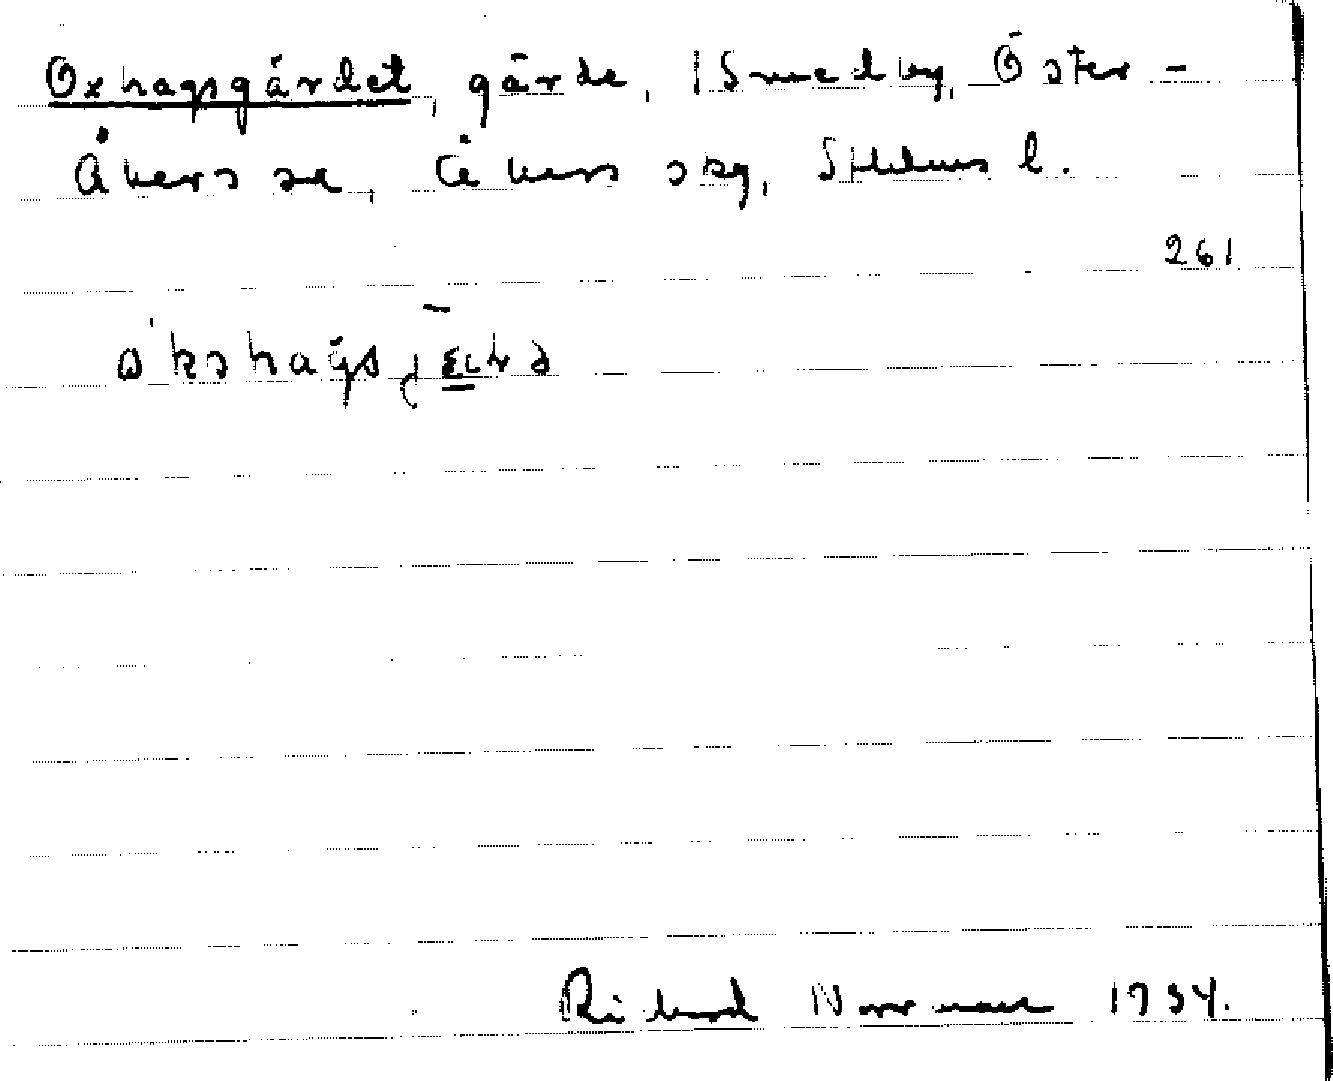 Oxhagsgärdet, gärde, Smedby, Öster-
Åkers sn, Åkers skg, Sthlms l.
261
Richard Norrman 1934.